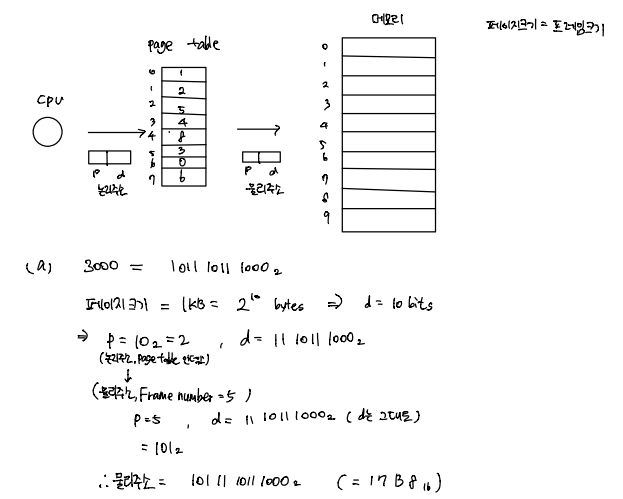 메모리
페이지크기 = 프레임크기
page table
CPU
0 1
1 2
2 5
3 4
4 8
5 3
6 0
7 6
0
1
2
3
4
5
6
7
8
9
p d
논리주소
p d
물리주소
(a) 3000 = 1011 1011 1000₂
페이지크기 = 1KB = 2¹⁰ bytes ⇒ d = 10 bits
⇒ p = 10₂ = 2 , d = 11 1011 1000₂
(논리주소, page table 인덱스)
↓
(물리주소, Frame number = 5 )
p = 5 , d = 11 1011 1000₂ ( d는 그대로 )
= 101₂
∴ 물리주소 = 101 11 1011 1000₂ ( = 17B8₁₆ )